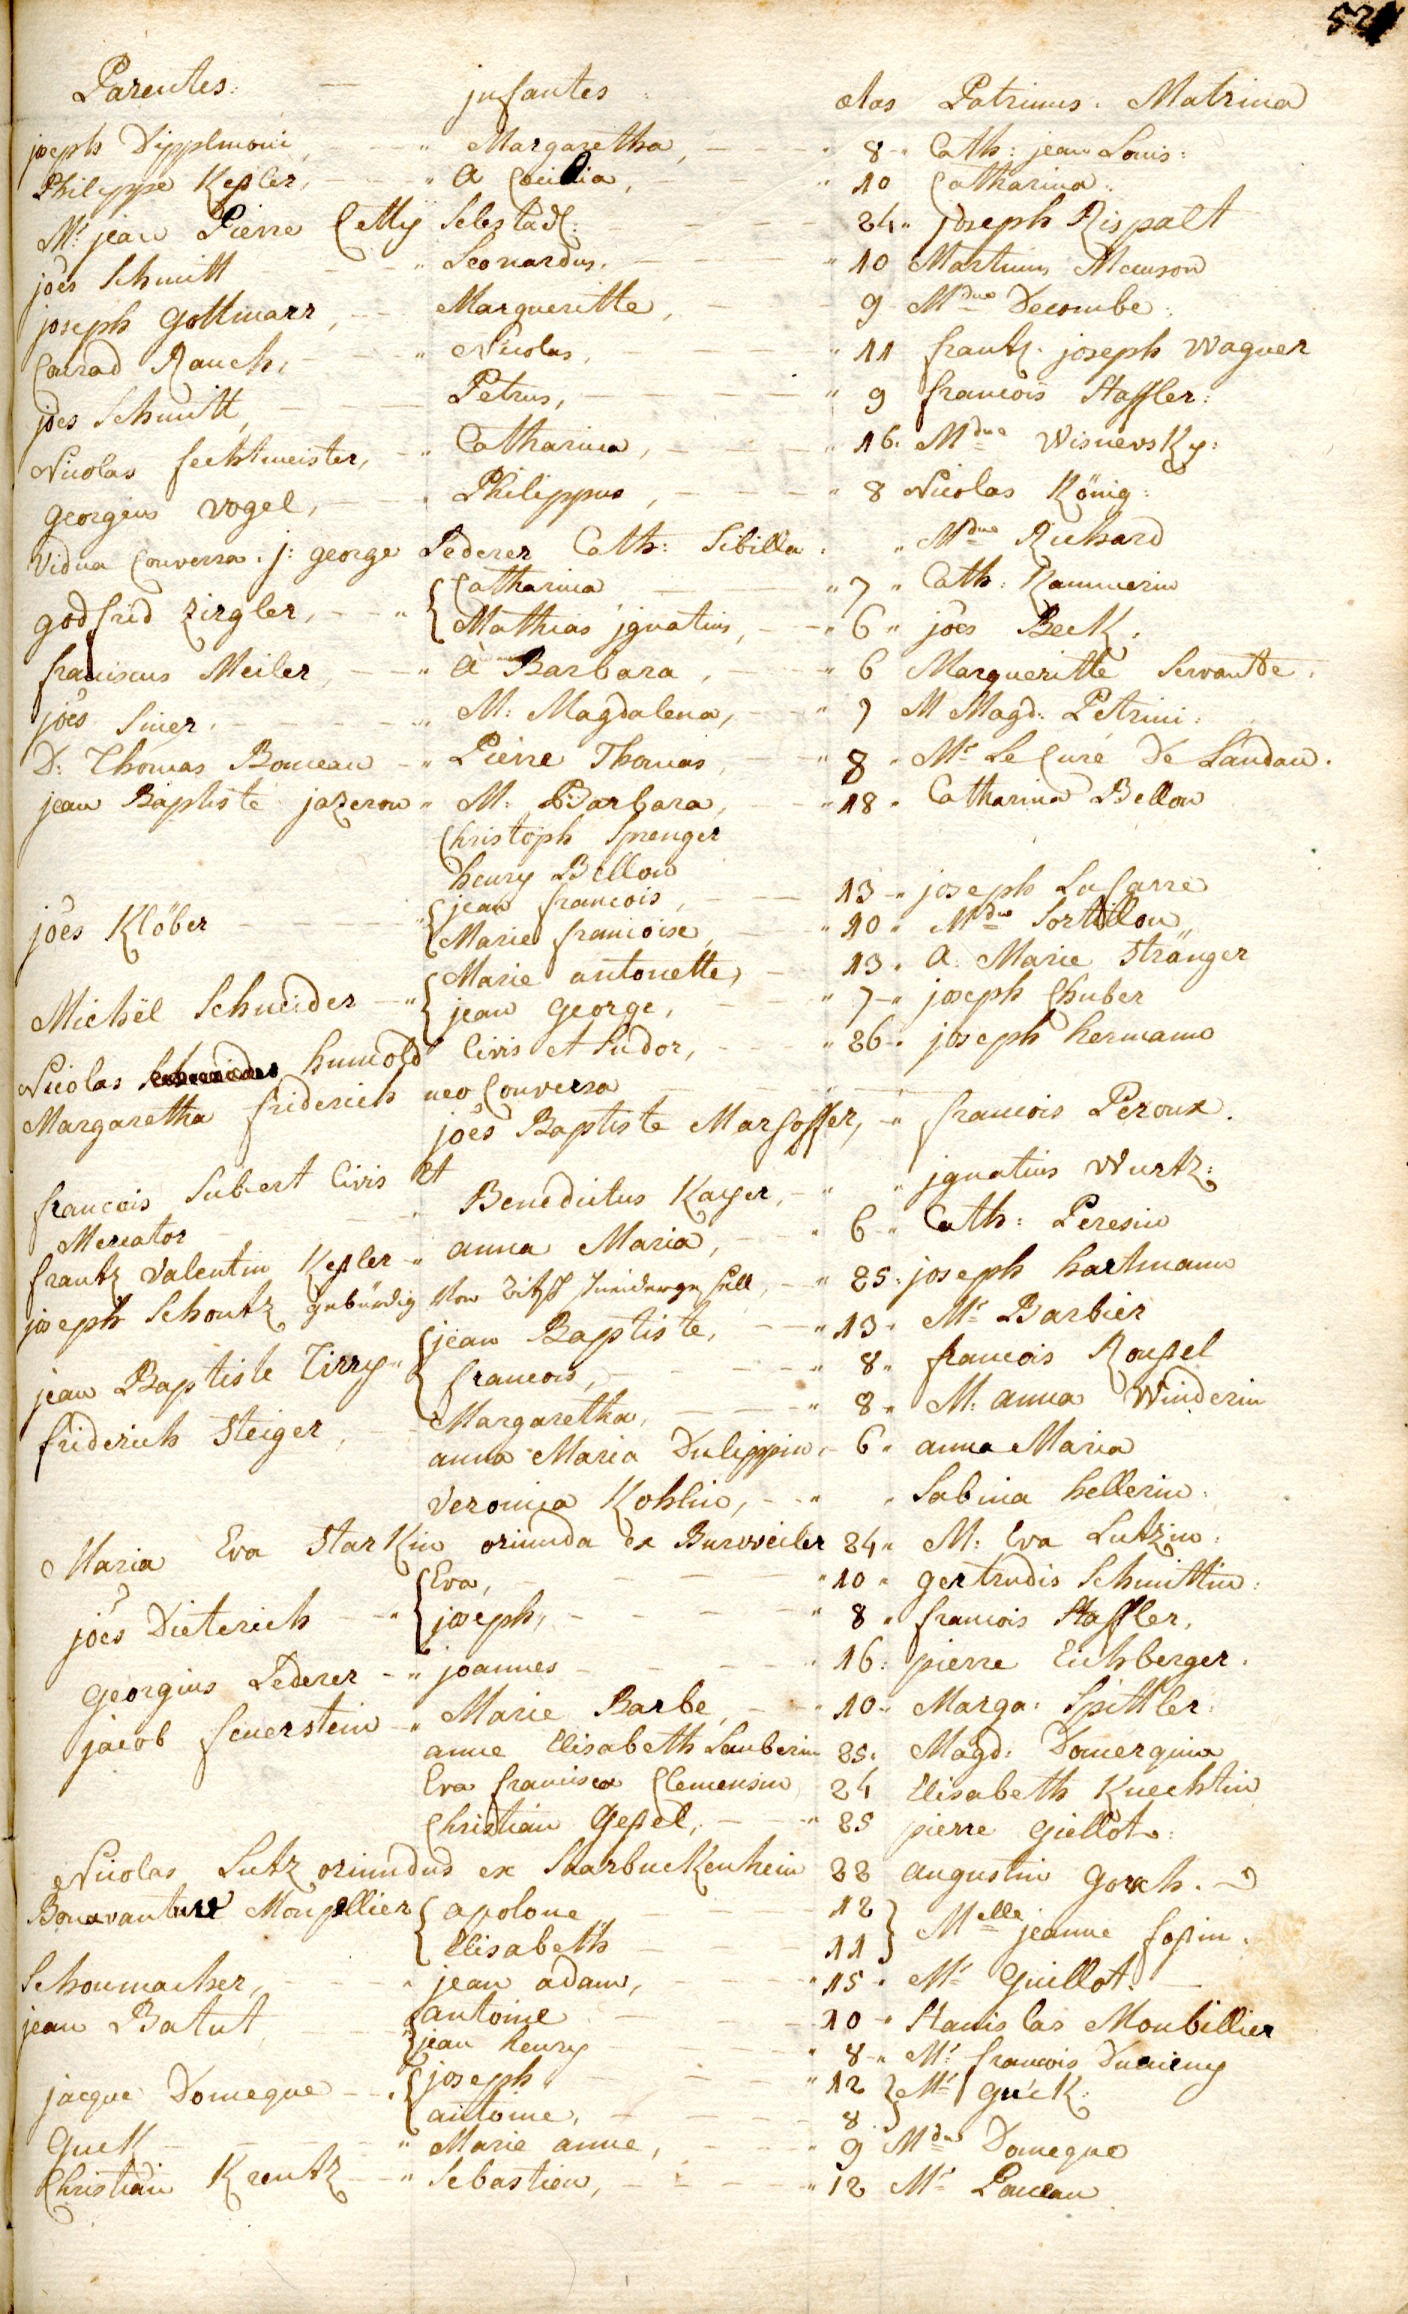 52
Parentes: — jnfantes : ætas Patrinus. Matrina
joseph Dipplmoni, " Margaretha, " 8 " Cath: jean Louis:
Philippe Keßler, " A Cecilia, " 10 Catharina:
Mr. jean Pierre Cetty Selestad: 24 " joseph Rispalt
joês Schmitt " Leonardus, " 10 Martinus Manson
joseph Gottmarr, Margueritte, 9 Mdme Decombe:
Conrad Rauch, " Nicolas, " 11 frantz joseph Wagner
joês Schmitt, Petrus, " 9 francois Staffler:
Nicolas fechtmeister, " Catharina, " 16. Mdme Wisnevsky:
Georgius Vogel, " Philippus, " 8 Nicolas König:
Vidua Conversa. j: george Lederer Cath: Sibilla: " Mdme Richard
godfrid Zirgler, " { Catharina " 7 " Cath: Kammerin
Mathias jgnatius, " 6 " joês Beck,
franciscus Meiler, " A Barbara, " 6 Margueritte Servante.
joês Siner. " M: Magdalena, " 7 M Magd: Petrini:
D: Thomas Boncean " Pierre Thomas, " 8 " Mr Le Curé De Landau.
jean Baptiste jazeron " M: Barbara, " 18 " Catharina Bellon
Christoph Sprenger
henry Bellon
joês Klöber " { jean francois, 13 " joseph Lacarre
Marie francoise, " 10 " Mdme Sortillon,
Michël Schneider " { Marie antonette, 13 " A: Marie Stränger
jean George, " 7 " joseph Chuber
Nicolas humold Civis et Sudor, " 26 " joseph hermann
Margaretha friderich neo Conversa
joês Baptiste Marsoffer, " francois Peroux.
francois Subert Civis et
Mercator " Benedictus Kayer, " " jgnatius Wurtz:
frantz Valentin Keßler " anna Maria, " 6 " Cath: Peresin
joseph Schontz gebürdig Von, " 25: joseph hartmann
jean Baptiste Tirry " { jean Baptiste, " 13 " Mr Barbier
francois, " 8 " francois Roußel
friderich Steiger, Margaretha, " 8 " M: anna Winderin
anna Maria Dulippin, 6 " anna Maria
Veronica Kohlin, " " Sabina hellerin:
Maria Eva Starkin oriunda ex Burweiler 24 " M: Eva Lutzin:
joês Dieterich " { Eva, " 10 " gertrudis Schmittin:
joseph, " 8 " francois Staffler,
Georgius Lederer " joannes " 16: pierre Eichberger.
jacob feuerstein " Marie Barbe, " 10 " Marga: Spittler:
anne Elisabeth Lauberin 25: Magd: Domerquin
Eva francisca Clemensin 24 Elisabeth Knechtin
Christian Geßel, " 25 pierre Giellot:
Nicolas Lutz oriundus ex Saarbuckenheim 22 augustin Gorch.
Bonavanture Monpellier { apolone 12 } Melle jeanne foßin.
Elisabeth 11
Schoumacher, " jean adam, " 15 " Mr Guillot.
jean Batut, " { antoine 10 " Stanislas Monbillier
jean henry " 8 " Mr francois Ducieny
jacque Domeque " { joseph " 12 } Mr Guéck:
antoine, 8.
Guek " Marie anne, " 9 Mdme Domeque
Christian Kreutz " Sebastien, " 12 Mr Ponceau